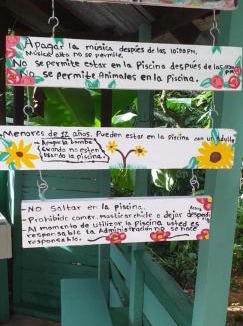 Apagar la música despies de las 10:00 PM.
Música alta no se permite.
No se permite estar en la Piscina después de las
No se permite Animales en la Piscina.
Menores de 12 años. Pueden estar en la Piscina con un adulto
Apague la bomba
Cuando no esten
Usando la piscina.
-No Saltar en la Piscina.
-Prohibido comer, masticar chicle o dejar
-Al momento de Utilizar la Piscina usted es
responsable la Administración no se hace
responsable.